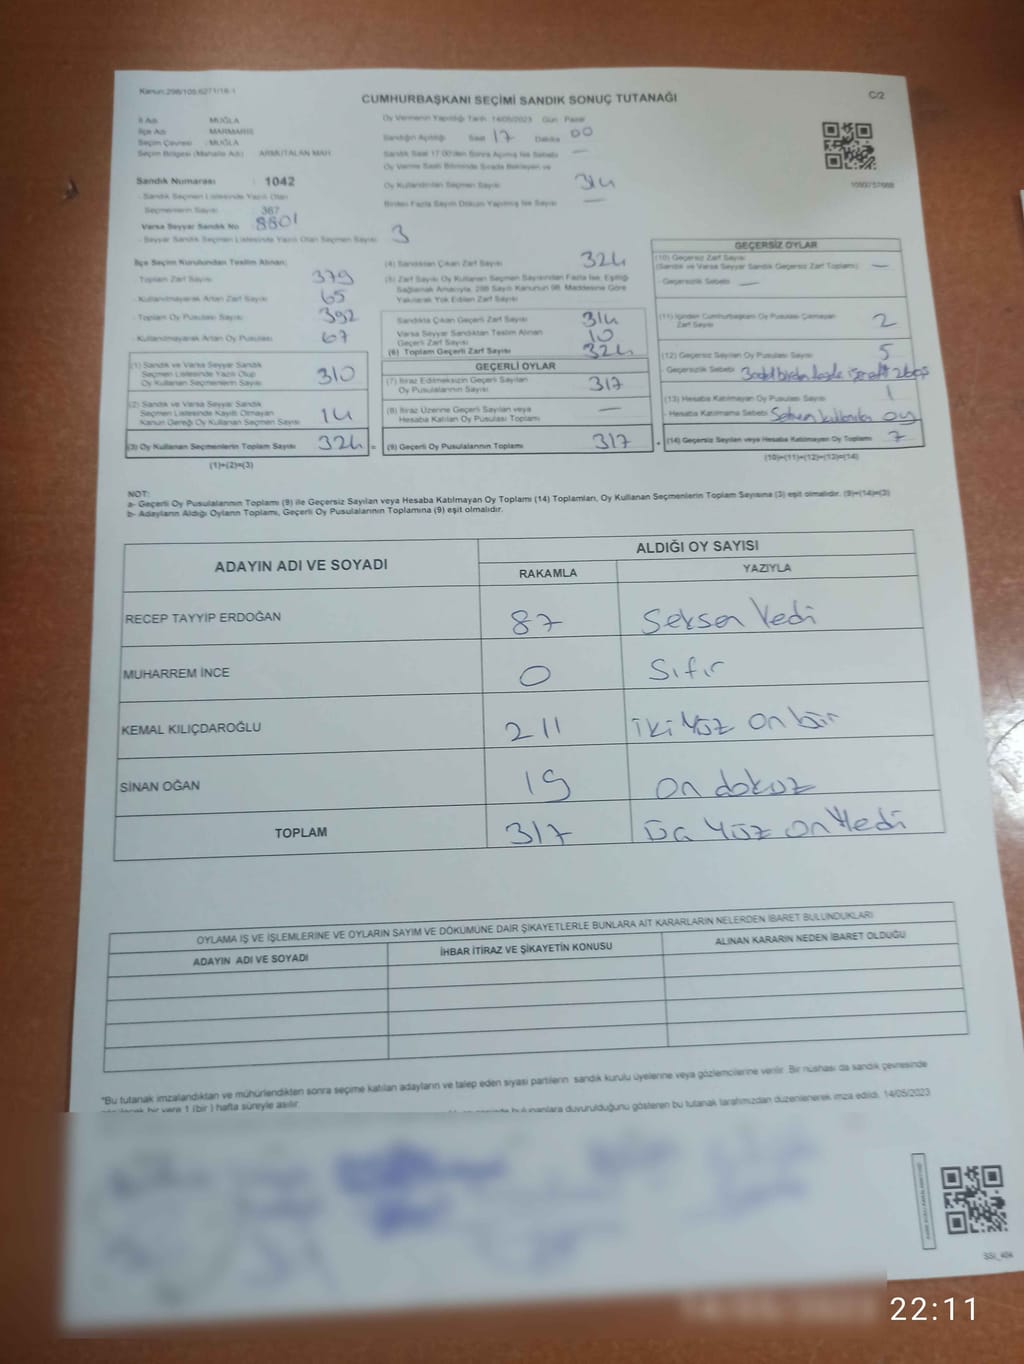 Kanun:298/105;6271/18-1
CUMHURBAŞKANI SEÇİMİ SANDIK SONUÇ TUTANAĞI
C/2
İl Adı MUĞLA
İlçe Adı MARMARİS
Seçim Çevresi : MUĞLA
Seçim Bölgesi (Mahalle Adı) ARMUTALAN MAH.
Oy Vermenin Yapıldığı Tarih: 14/05/2023 Gün: Pazar
Sandığın Açıldığı Saat 17 Dakika 00
Sandık Saat 17:00'den Sonra Açılmış İse Sebebi —
Oy Verme Saati Bitiminde Sırada Bekleyen ve
Oy Kullandırılan Seçmen Sayısı 314
Birden Fazla Sayım Döküm Yapılmış İse Sayısı —
Sandık Numarası : 1042
- Sandık Seçmen Listesinde Yazılı Olan
Seçmenlerin Sayısı : 367
Varsa Seyyar Sandık No 8801
- Seyyar Sandık Seçmen Listesinde Yazılı Olan Seçmen Sayısı 3
İlçe Seçim Kurulundan Teslim Alınan;
Toplam Zarf Sayısı 379
- Kullanılmayarak Artan Zarf Sayısı 65
- Toplam Oy Pusulası Sayısı 392
- Kullanılmayarak Artan Oy Pusulası 67
(1) Sandık ve Varsa Seyyar Sandık
Seçmen Listesinde Yazılı Olup
Oy Kullanan Seçmenlerin Sayısı 310
(2) Sandık ve Varsa Seyyar Sandık
Seçmen Listesinde Kayıtlı Olmayan
Kanun Gereği Oy Kullanan Seçmen Sayısı 14
(3) Oy Kullanan Seçmenlerin Toplam Sayısı 324 =
(1)+(2)=(3)
(4) Sandıktan Çıkan Zarf Sayısı 324
(5) Zarf Sayısı Oy Kullanan Seçmen Sayısından Fazla İse, Eşitliği
Sağlamak Amacıyla, 298 Sayılı Kanunun 98. Maddesine Göre
Yakılarak Yok Edilen Zarf Sayısı
Sandıkta Çıkan Geçerli Zarf Sayısı 314
Varsa Seyyar Sandıktan Teslim Alınan
Geçerli Zarf Sayısı 10
(6) Toplam Geçerli Zarf Sayısı 324
GEÇERLİ OYLAR
(7) İtiraz Edilmeksizin Geçerli Sayılan
Oy Pusulalarının Sayısı 317
(8) İtiraz Üzerine Geçerli Sayılan veya
Hesaba Katılan Oy Pusulası Toplamı —
(9) Geçerli Oy Pusulalarının Toplamı 317 +
GEÇERSİZ OYLAR
(10) Geçersiz Zarf Sayısı
(Sandık ve Varsa Seyyar Sandık Geçersiz Zarf Toplamı) —
- Geçersizlik Sebebi —
(11) İçinden Cumhurbaşkanı Oy Pusulası Çıkmayan
Zarf Sayısı 2
(12) Geçersiz Sayılan Oy Pusulası Sayısı 5
Geçersizlik Sebebi
(13) Hesaba Katılmayan Oy Pusulası Sayısı 1
- Hesaba Katılmama Sebebi oy
(14) Geçersiz Sayılan veya Hesaba Katılmayan Oy Toplamı 7
(10)+(11)+(12)+(13)=(14)
NOT:
a- Geçerli Oy Pusulalarının Toplamı (9) ile Geçersiz Sayılan veya Hesaba Katılmayan Oy Toplamı (14) Toplamları, Oy Kullanan Seçmenlerin Toplam Sayısına (3) eşit olmalıdır. (9)+(14)=(3)
b- Adayların Aldığı Oyların Toplamı, Geçerli Oy Pusulalarının Toplamına (9) eşit olmalıdır.
ADAYIN ADI VE SOYADI ALDIĞI OY SAYISI
RAKAMLA YAZIYLA
RECEP TAYYİP ERDOĞAN 87 Seksen Yedi
MUHARREM İNCE 0 Sıfır
KEMAL KILIÇDAROĞLU 211 iki Yüz on bir
SİNAN OĞAN 19 on dokuz
TOPLAM 317 Üç Yüz on Yedi
OYLAMA İŞ VE İŞLEMLERİNE VE OYLARIN SAYIM VE DÖKÜMÜNE DAİR ŞİKAYETLERLE BUNLARA AİT KARARLARIN NELERDEN İBARET BULUNDUKLARI
ADAYIN ADI VE SOYADI İHBAR İTİRAZ VE ŞİKAYETİN KONUSU ALINAN KARARIN NEDEN İBARET OLDUĞU
*Bu tutanak imzalandıktan ve mühürlendikten sonra seçime katılan adayların ve talep eden siyasi partilerin sandık kurulu üyelerine veya gözlemcilerine verilir. Bir nüshası da sandık çevresinde
bir yere 1 (bir ) hafta süreyle asılır.
bulunanlara duyurulduğunu gösteren bu tutanak tarafımızdan düzenlenerek imza edildi. 14/05/2023
22:11